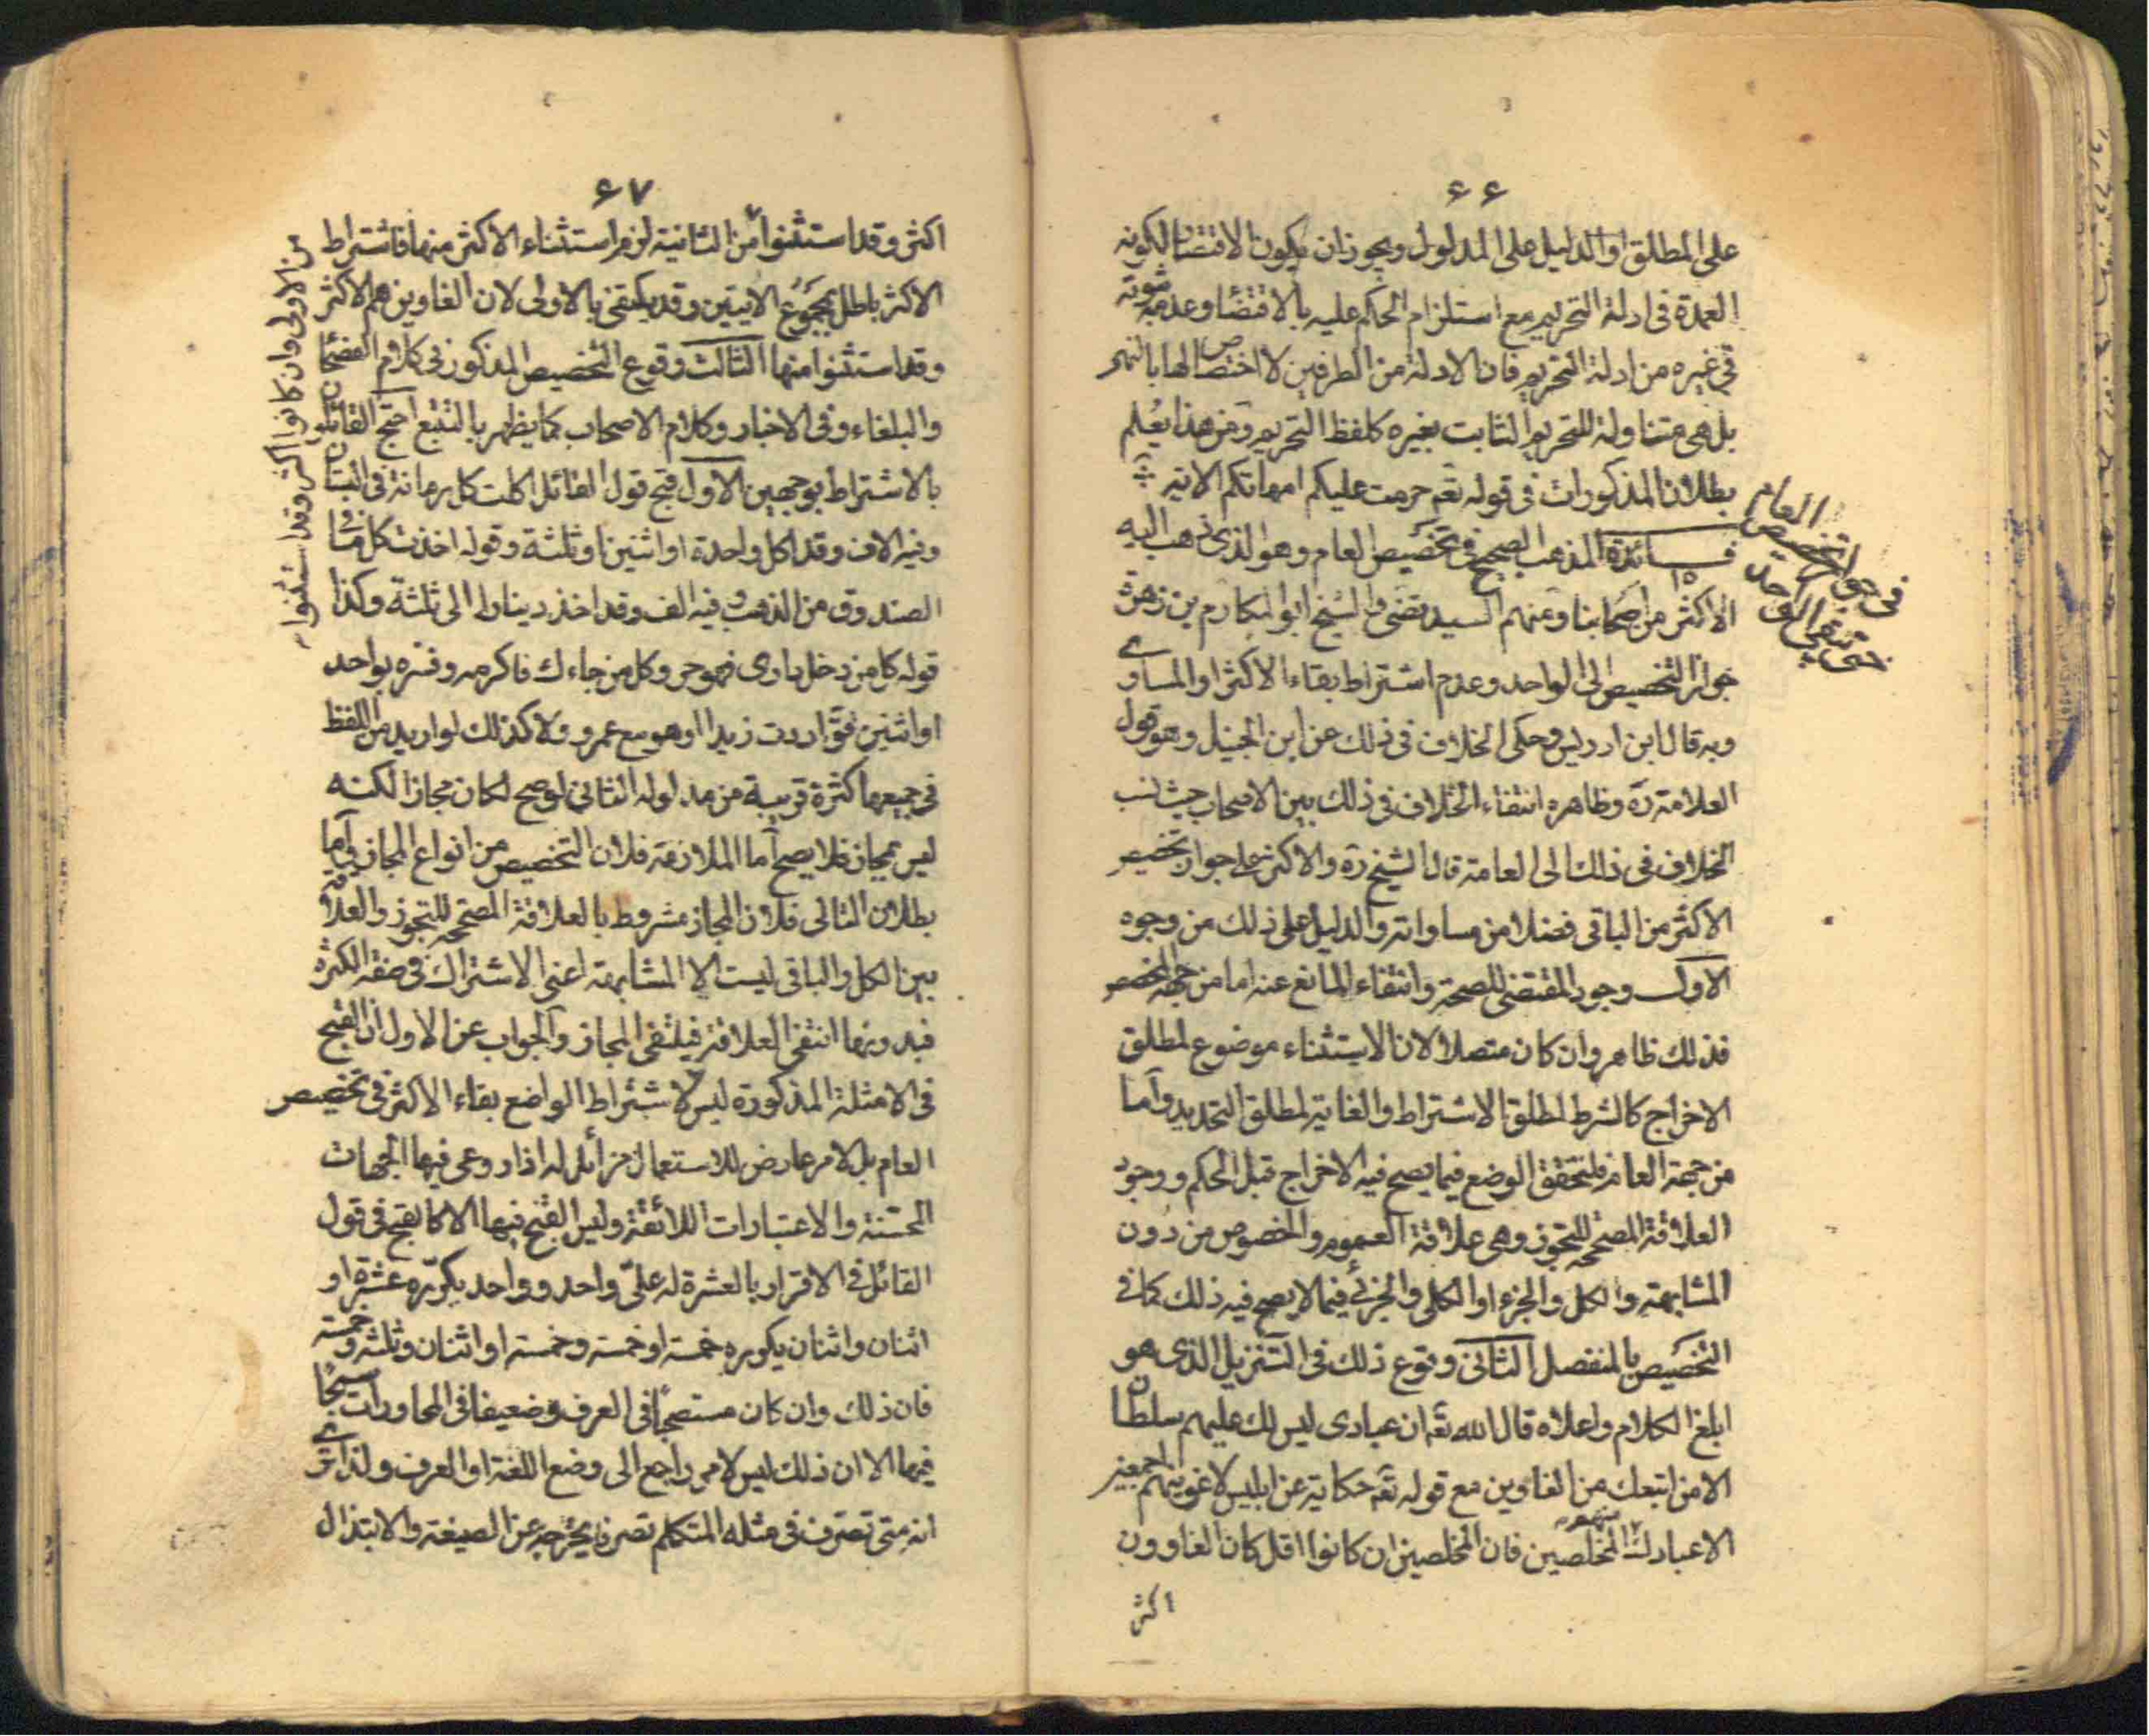 ۶۶
على المطلق او الدليل على المدلول ويجوز ان يكون الاقتضا لكونه
العمدة فى ادلة التحريم مع استلزام الحكم عليه بالاقتضا وعدمه ثبوته
فى غيره من ادلة التحريم فان الادلة من الطرفين لا اختصا ص لها بالنهى
بل هى متناولة للتحريم الثابت بغيره كلفظ التحريم ومن هذا يعلم
بطلان المذكورات فى قوله تعم حرمت عليكم امهاتكم الاية
فى جواز تخصيص العام
حتى يبقى الواحد
فــائدة المذهب الصحيح فى تخصيص العام وهو الذى ذهب اليه
الاكثر من اصحابنا ومنهم السيد تضى والشيخ ابو المكارم بن زهرة
جواز التخصيص الى الواحد وعدم اشتراط بقاء الاكثر او المساوى
وبه قال ابن ادريس وحكى الخلاف فى ذلك عن ابن الجنيد وهو قول
العلامة ره وظاهره انتفاء الخلاف فى ذلك بين الاصحاب حيث نسب
الخلاف فى ذلك الى العامة قال الشيخ ره والاكثر على جواز تخصيص
الاكثر من الباقى فضلا من مساواته والدليل على ذلك من وجوه
الاول وجود المقتضى للصحة وانتفاء المانع عنه اما من جهة المخصص
فذلك ظاهر وان كان متصلا لان الاستثناء موضوع لمطلق
الاخراج كالشرط لمطلق الاشتراط والغاية لمطلق التحديد وآما
من جهة العام فلتحقق الوضع فيما يصح فيه الاخراج قبل الحكم ووجود
العلاقة المصححة للتجوز وهى علاقة العموم والخصوص من دون
المشابهة والكل والجزء او الكلى والجزئى فيما لا يصح فيه ذلك كما فى
التخصيص بالمنفصل الثانى وقوع ذلك فى التنزيل الذى هو
ابلغ الكلام واعلاه قال الله تعم ان عبادى ليس لك عليهم سلطان
الا من اتبعك من الغاوين مع قوله تعم حكاية عن ابليس لاغوينهم اجمعين
الا عبادك منهم المخلصين فان المخلصين ان كانوا اقل كان الغاوون
اكثر
۶۷
اكثر وقد استثنوا من الثانية لزم استثناء الاكثر منهما فاشتراط
الاكثر باطل بمجموع الايتين وقد يكتفى بالاولى لان الغاوين هم الاكثر
من الاولى وان كانوا اكثر وقد استثنوا
وقد استثنوا منها الثالث وقوع التخصيص المذكور فى كلام الفصحاء
والبلغاء وفى الاخبار وكلام الاصحاب كما يظهر بالتتبع احتج القائلون
بالاشتراط بوجهين الاول قبح قول القائل اكلت كل رمانة فى البستان
وفيه الاف وقد اكل واحدة او اثنين او ثلثة وقوله اخذت كل ما فى
الصندوق من الذهب وفيه الف وقد اخذ دينارا الى ثلثة وكذا
قوله كل من دخل دارى فهو حر وكل من جاءك فاكرمه وفسره بواحد
او اثنين فق اردت زيدا او هو مع عمرو ولا كذلك لو اريد من اللفظ
فى جميعها كثرة قريبة من مدلوله الثانى لو صح لكان مجازا لكنه
ليس بمجاز فلا يصح آما الملازمة فلان التخصيص من انواع المجاز وآما
بطلان التالى فلان المجاز مشروط بالعلاقة المصححة للتجوز والعلاقة
بين الكل والباقى ليست الا المشابهة اعنى الاشتراك فى صفة الكثرة
فبدونها انتفى العلاقة فينتفى المجاز والجواب عن الاول ان القبح
فى الامثلة المذكورة ليس لاشتراط الواضع بقاء الاكثر فى تخصيص
العام بل لامر عارض للاستعمال زائل له اذا روعى فيها الجهات
المحسنة والاعتبارات اللائقة وليس القبح فيها الا كما يقبح فى قول
القائل فى الاقرار بالعشرة له علىّ واحد وواحد يكرره عشرة او
اثنان واثنان يكوره خمسة او خمسة وخمسة او اثنان وثلثة وخمسة
فان ذلك وان كان مستصحبا فى العرف وضعيفا فى المحاورات
فيها الا ان ذلك ليس لامر راجع الى وضع اللغة او العرف ولذا ترى
انه متى تصرف فى مثله المتكلم تصرفا يخرجه عن الصيغة والابتذال